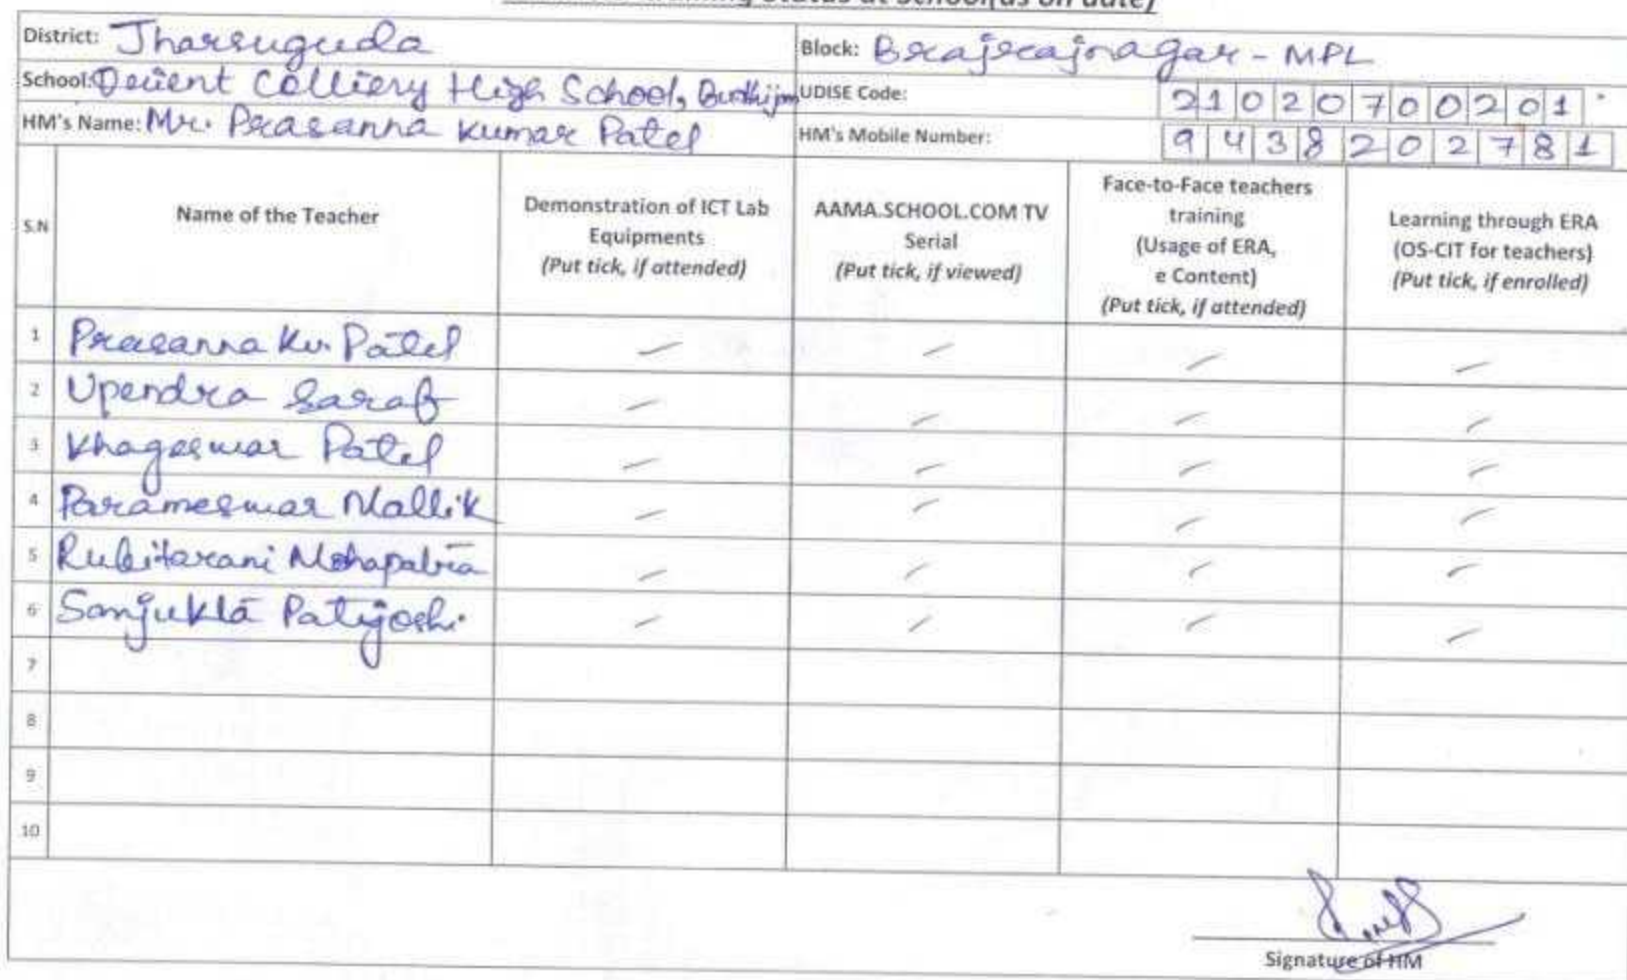 Training Status at School(as on date)
District: Jharsuguda Block: Brajrajnagar - MPL
School: Orient Colliery High School, UDISE Code: 21020700201
HM's Name: Mr. Prasanna Kumar Patel HM's Mobile Number: 9438202781
S.N Name of the Teacher Demonstration of ICT Lab Equipments (Put tick, if attended) AAMA.SCHOOL.COM TV Serial (Put tick, if viewed) Face-to-Face teachers training (Usage of ERA, e Content) (Put tick, if attended) Learning through ERA (OS-CIT for teachers) (Put tick, if enrolled)
1 Prasanna Ku. Patel
2 Upendra Saraf
3 Khageswar Patel
4 Parameswar Mallik
5 Rubitarani Mohapatra
6 Sanjukta Patijoshi
7
8
9
10
Signature of HM